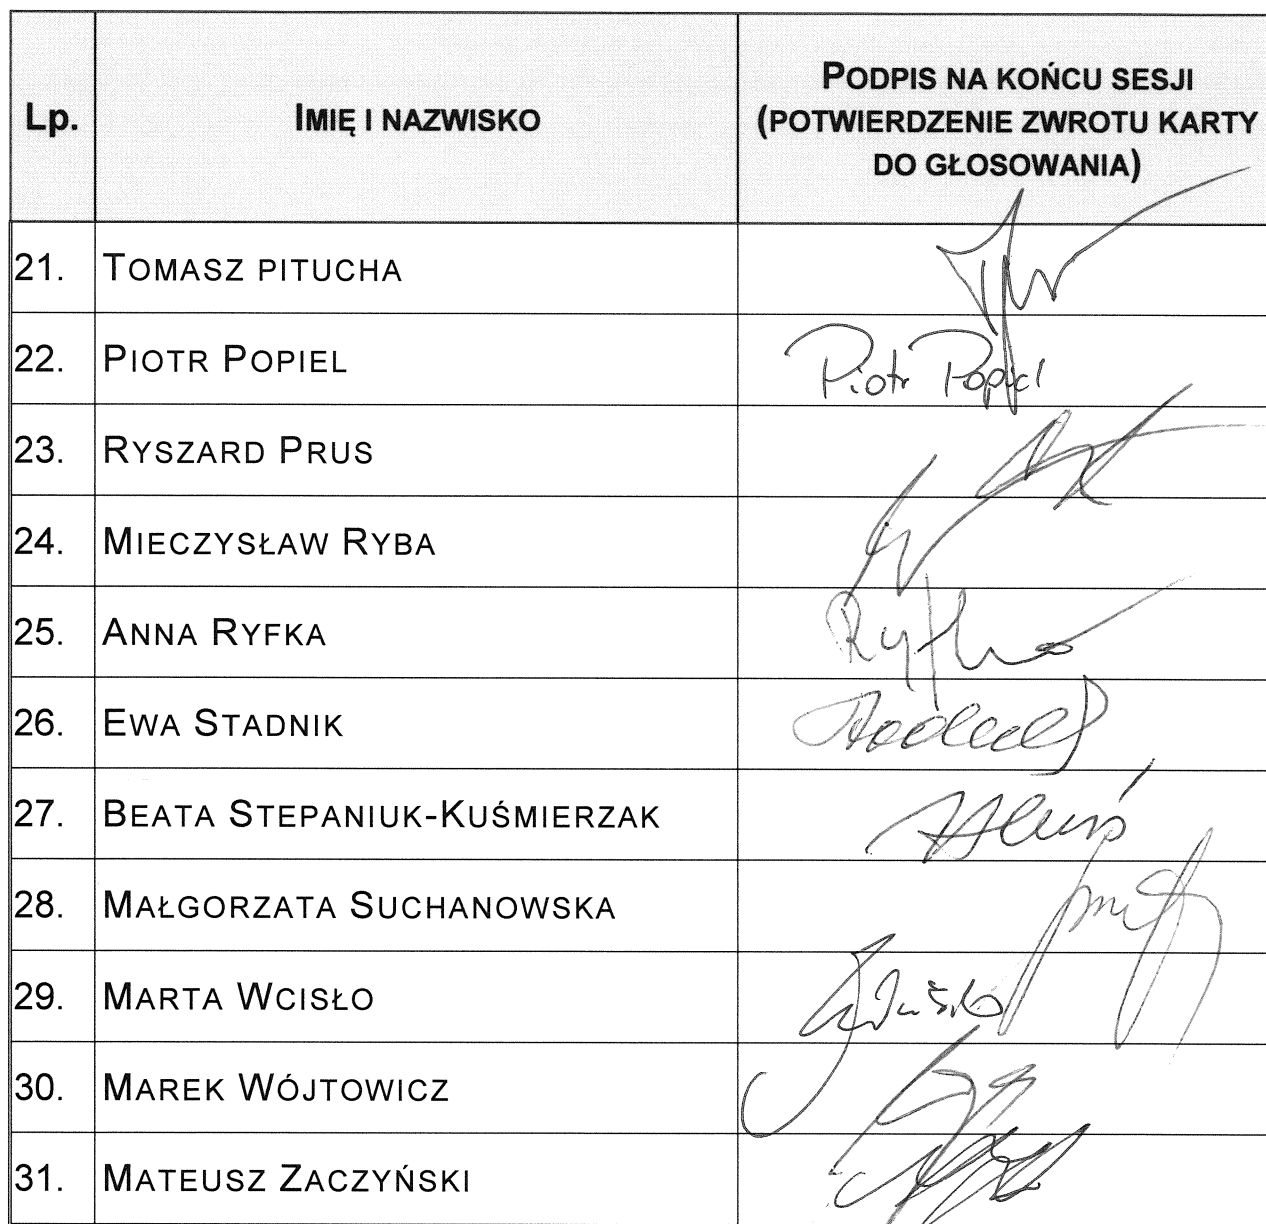 Lp.
IMIĘ I NAZWISKO
PODPIS NA KOŃCU SESJI
(POTWIERDZENIE ZWROTU KARTY
DO GŁOSOWANIA)
21. TOMASZ PITUCHA
22. PIOTR POPIEL Piotr Popiel
23. RYSZARD PRUS
24. MIECZYSŁAW RYBA
25. ANNA RYFKA Ryfka
26. EWA STADNIK
27. BEATA STEPANIUK-KUŚMIERZAK
28. MAŁGORZATA SUCHANOWSKA
29. MARTA WCISŁO
30. MAREK WÓJTOWICZ
31. MATEUSZ ZACZYŃSKI